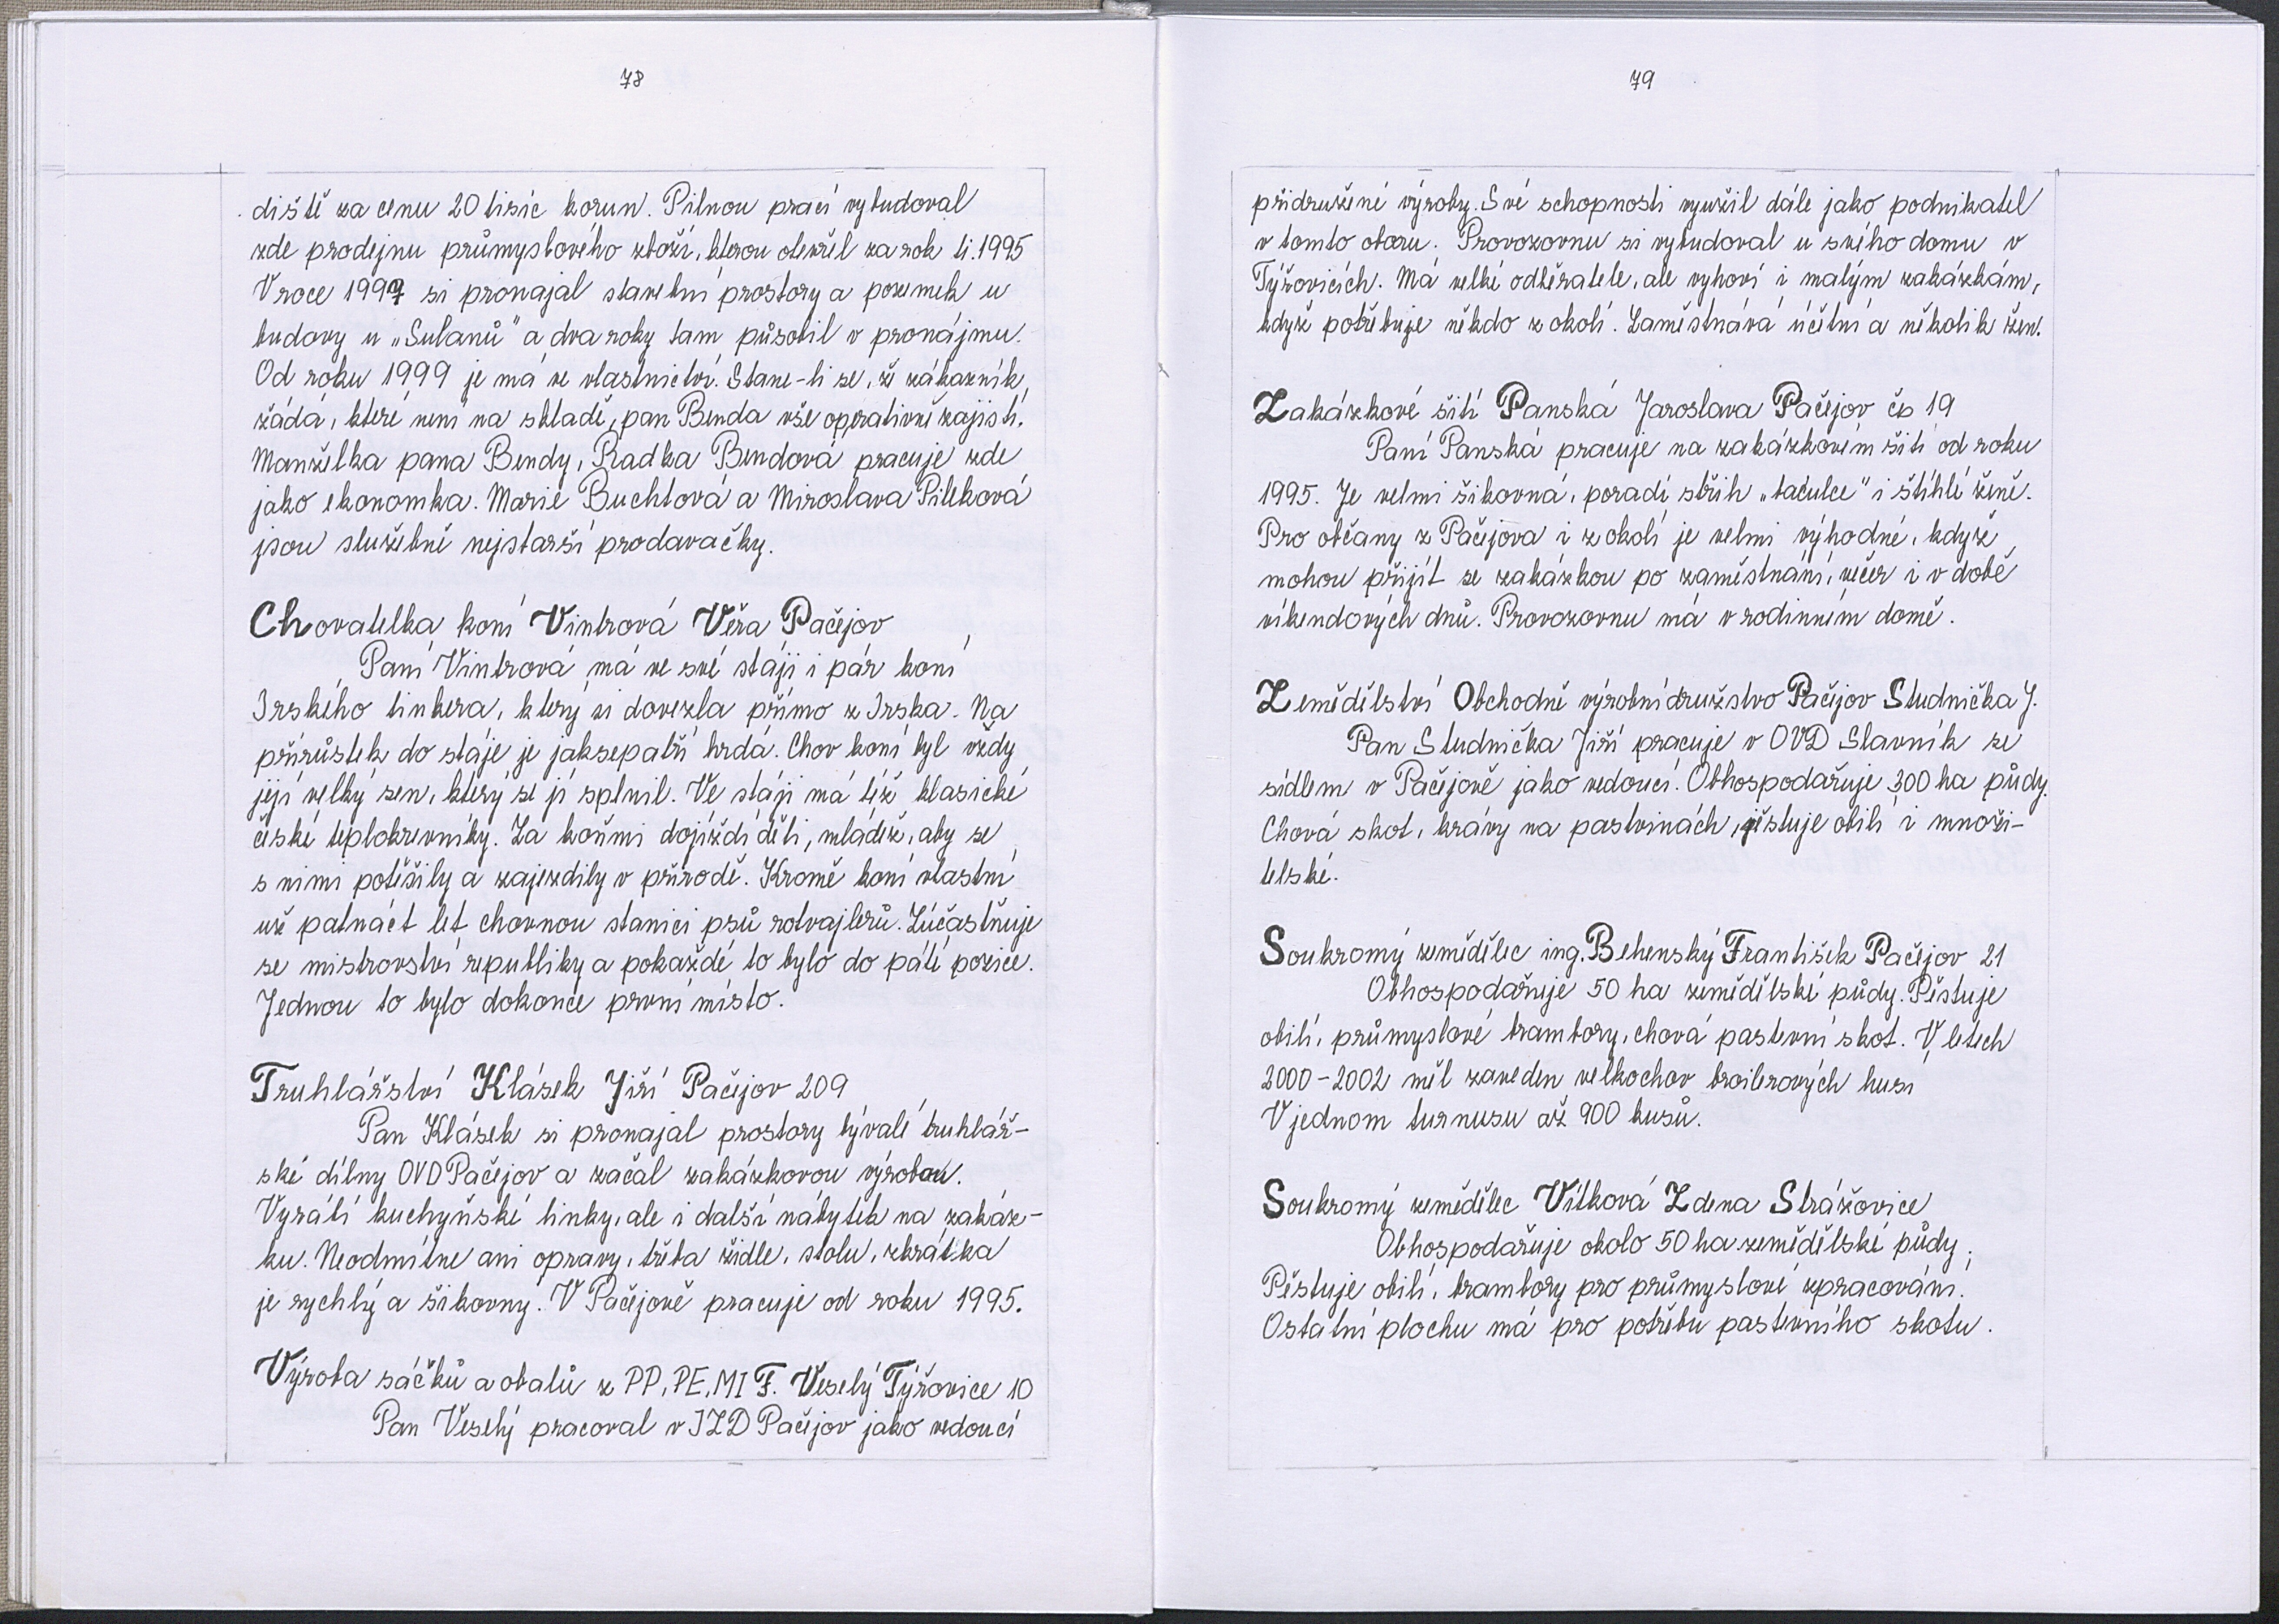 78
diště za cenu 20 tisíc korun. Pilnou prací vybudoval
zde prodejnu průmyslového zboží, kterou otevřel za rok tj. 1995
V roce 1997 si pronajal stavební prostory a pozemek u
budovy u „Sulanů" a dva roky tam působil v pronájmu.
Od roku 1999 je má ve vlastnictví. Stane-li se, že zákazník
žádá, které není na skladě, pan Benda vše operativně zajistí.
Manželka pana Bendy, Radka Bendová pracuje zde
jako ekonomka. Marie Buchtová a Miroslava Pileková
jsou služebně nejstarší prodavačky.
Chovatelka koní Vintrová Věra Pačejov
Paní Vintrová má ve své stáji i pár koní
Irského tinkera, který si dovezla přímo z Irska. Na
přírůstek do stáje je jaksepatří hrdá. Chov koní byl vždy
její velký sen, který se jí splnil. Ve stáji má též klasické
české teplokrevníky. Za koňmi dojíždí děti, mládež, aby se
s nimi potěšily a zajezdily v přírodě. Kromě koní vlastní
už patnáct let chovnou stanici psů rotvajlerů. Zúčastňuje
se mistrovství republiky a pokaždé to bylo do páté pozice.
Jednou to bylo dokonce první místo.
Truhlářství Klásek Jiří Pačejov 209
Pan Klásek si pronajal prostory bývalé truhlář-
ské dílny OVD Pačejov a začal zakázkovou výrobou.
Vyrábí kuchyňské linky, ale i další nábytek na zakáz-
ku. Neodmítne ani opravy, třeba židle, stolu, zkrátka
je rychlý a šikovný. V Pačejově pracuje od roku 1995.
Výroba sáčků a obalů z PP, PE, MI F. Veselý Týřovice 10
Pan Veselý pracoval v JZD Pačejov jako vedoucí
79
přidružené výroby. Své schopnosti využil dále jako podnikatel
v tomto oboru. Provozovnu si vybudoval u svého domu v
Týřovicích. Má velké odběratele, ale vyhoví i malým zakázkám,
když potřebuje někdo z okolí. Zaměstnává účetní a několik žen.
Zakázkové šití Panská Jaroslava Pačejov čp 19
Paní Panská pracuje na zakázkovém šití od roku
1995. Je velmi šikovná, poradí střih „baculce" i štíhlé ženě.
Pro občany z Pačejova i z okolí je velmi výhodné, když
mohou přijít se zakázkou po zaměstnání, večer i v době
víkendových dnů. Provozovnu má v rodinném domě.
Zemědělství Obchodně výrobní družstvo Pačejov Studnička J.
Pan Studnička Jiří pracuje v OVD Slavník se
sídlem v Pačejově jako vedoucí. Obhospodařuje 300 ha půdy.
Chová skot, krávy na pastvinách, pěstuje obilí i množi-
telské.
Soukromý zemědělec ing. Behenský František Pačejov 21
Obhospodařuje 50 ha zemědělské půdy. Pěstuje
obilí, průmyslové brambory, chová pastevní skot. V letech
2000-2002 měl zaveden velkochov broilerových husí
V jednom turnusu až 900 kusů.
Soukromý zemědělec Vítková Zdena Strážovice
Obhospodařuje okolo 50 ha zemědělské půdy.
Pěstuje obilí, brambory pro průmyslové zpracování.
Ostatní plochu má pro potřebu pastevního skotu.